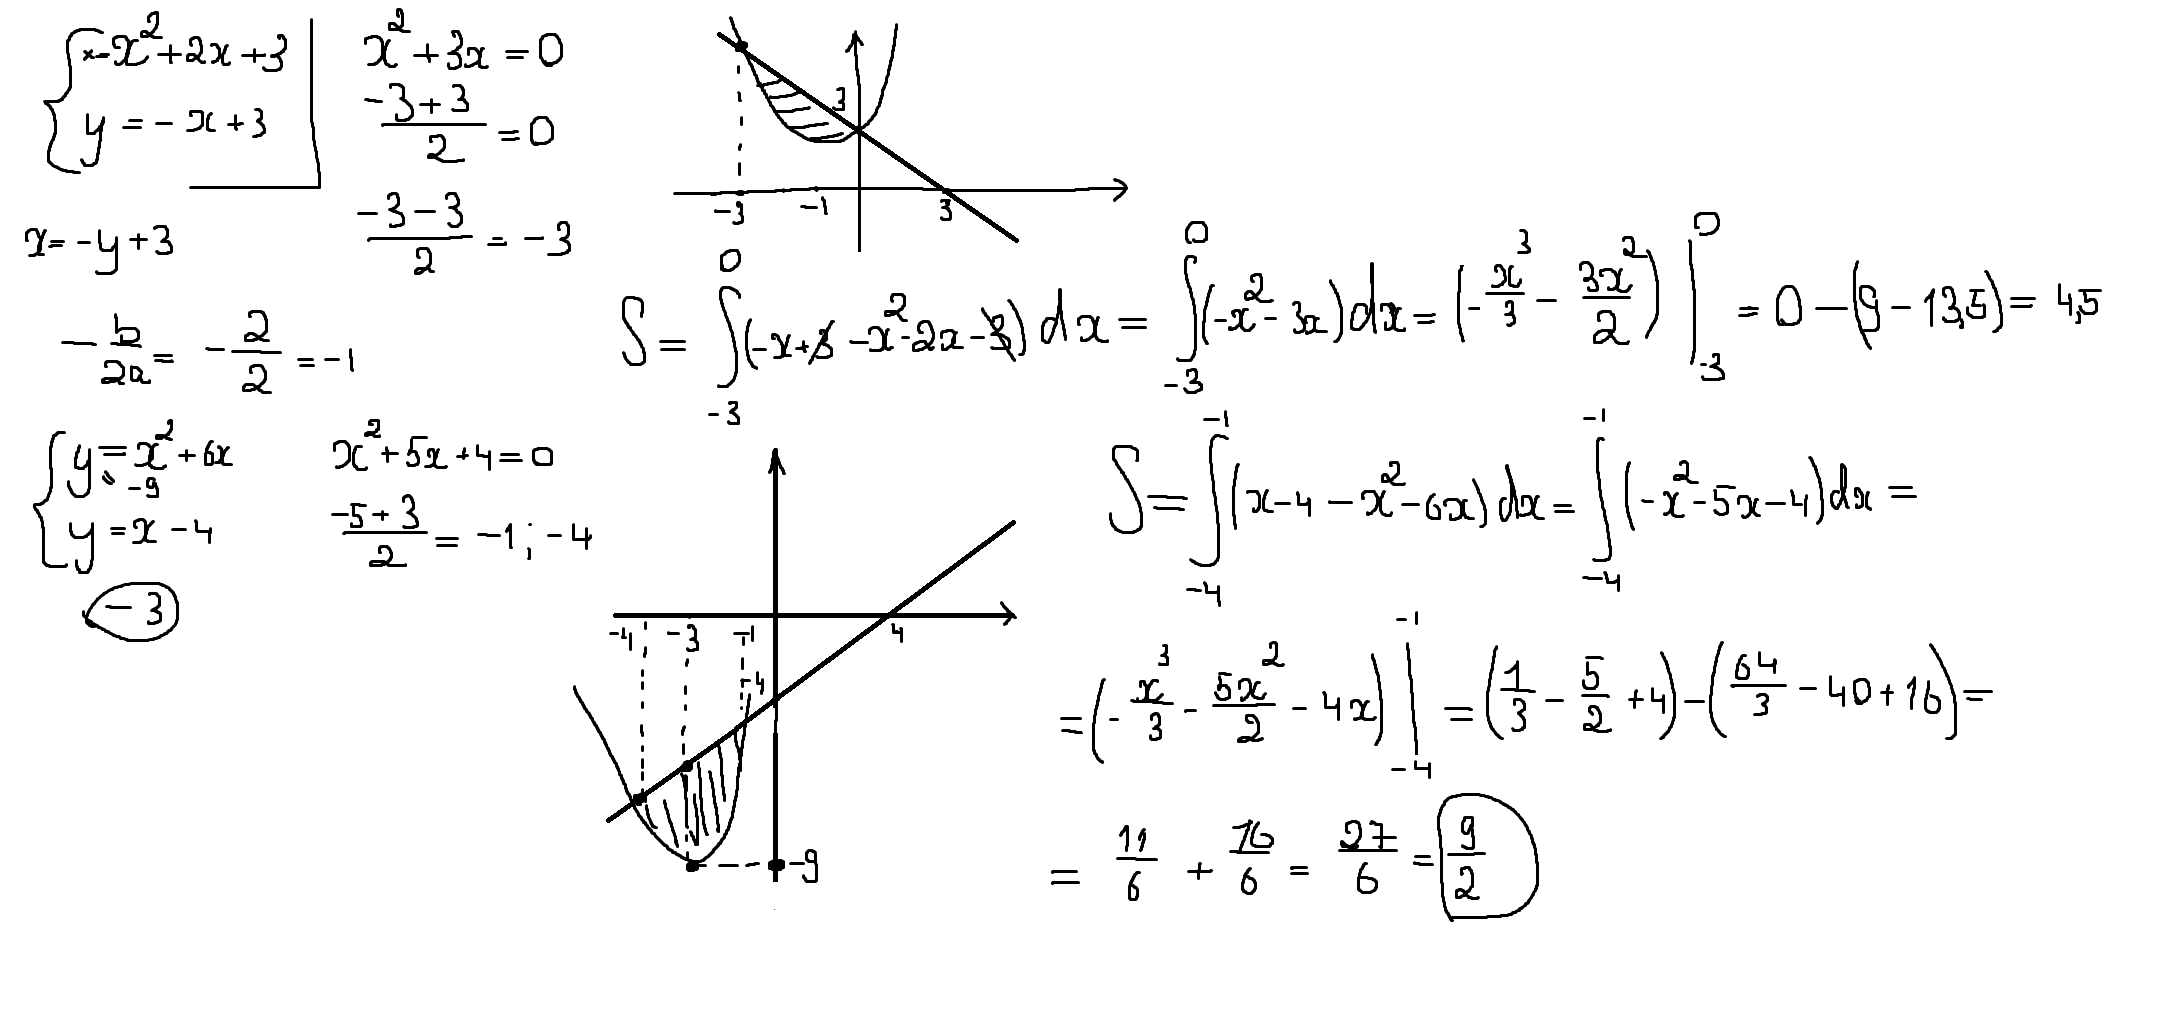 x-x²+2x+3
y = -x+3
x² + 3x = 0
(-3+3)/2 = 0
(-3-3)/2 = -3
x = -y+3
-b/2a = -2/2 = -1
3
-3 -1 3
S = ∫_{-3}^{0} (-x+3 -x²-2x-3) dx = ∫_{-3}^{0} (-x²-3x) dx = (-x³/3 - 3x²/2) |_{-3}^{0} = 0 - (9 - 13,5) = 4,5
y = x² + 6x
-9
y = x - 4
-3
x² + 5x + 4 = 0
(-5+3)/2 = -1; -4
-4 -3 -1 4
-4
-9
S = ∫_{-4}^{-1} (x-4-x²-6x) dx = ∫_{-4}^{-1} (-x²-5x-4) dx =
= (-x³/3 - 5x²/2 - 4x) |_{-4}^{-1} = (1/3 - 5/2 + 4) - (64/3 - 40 + 16) =
= 11/6 + 16/6 = 27/6 = 9/2